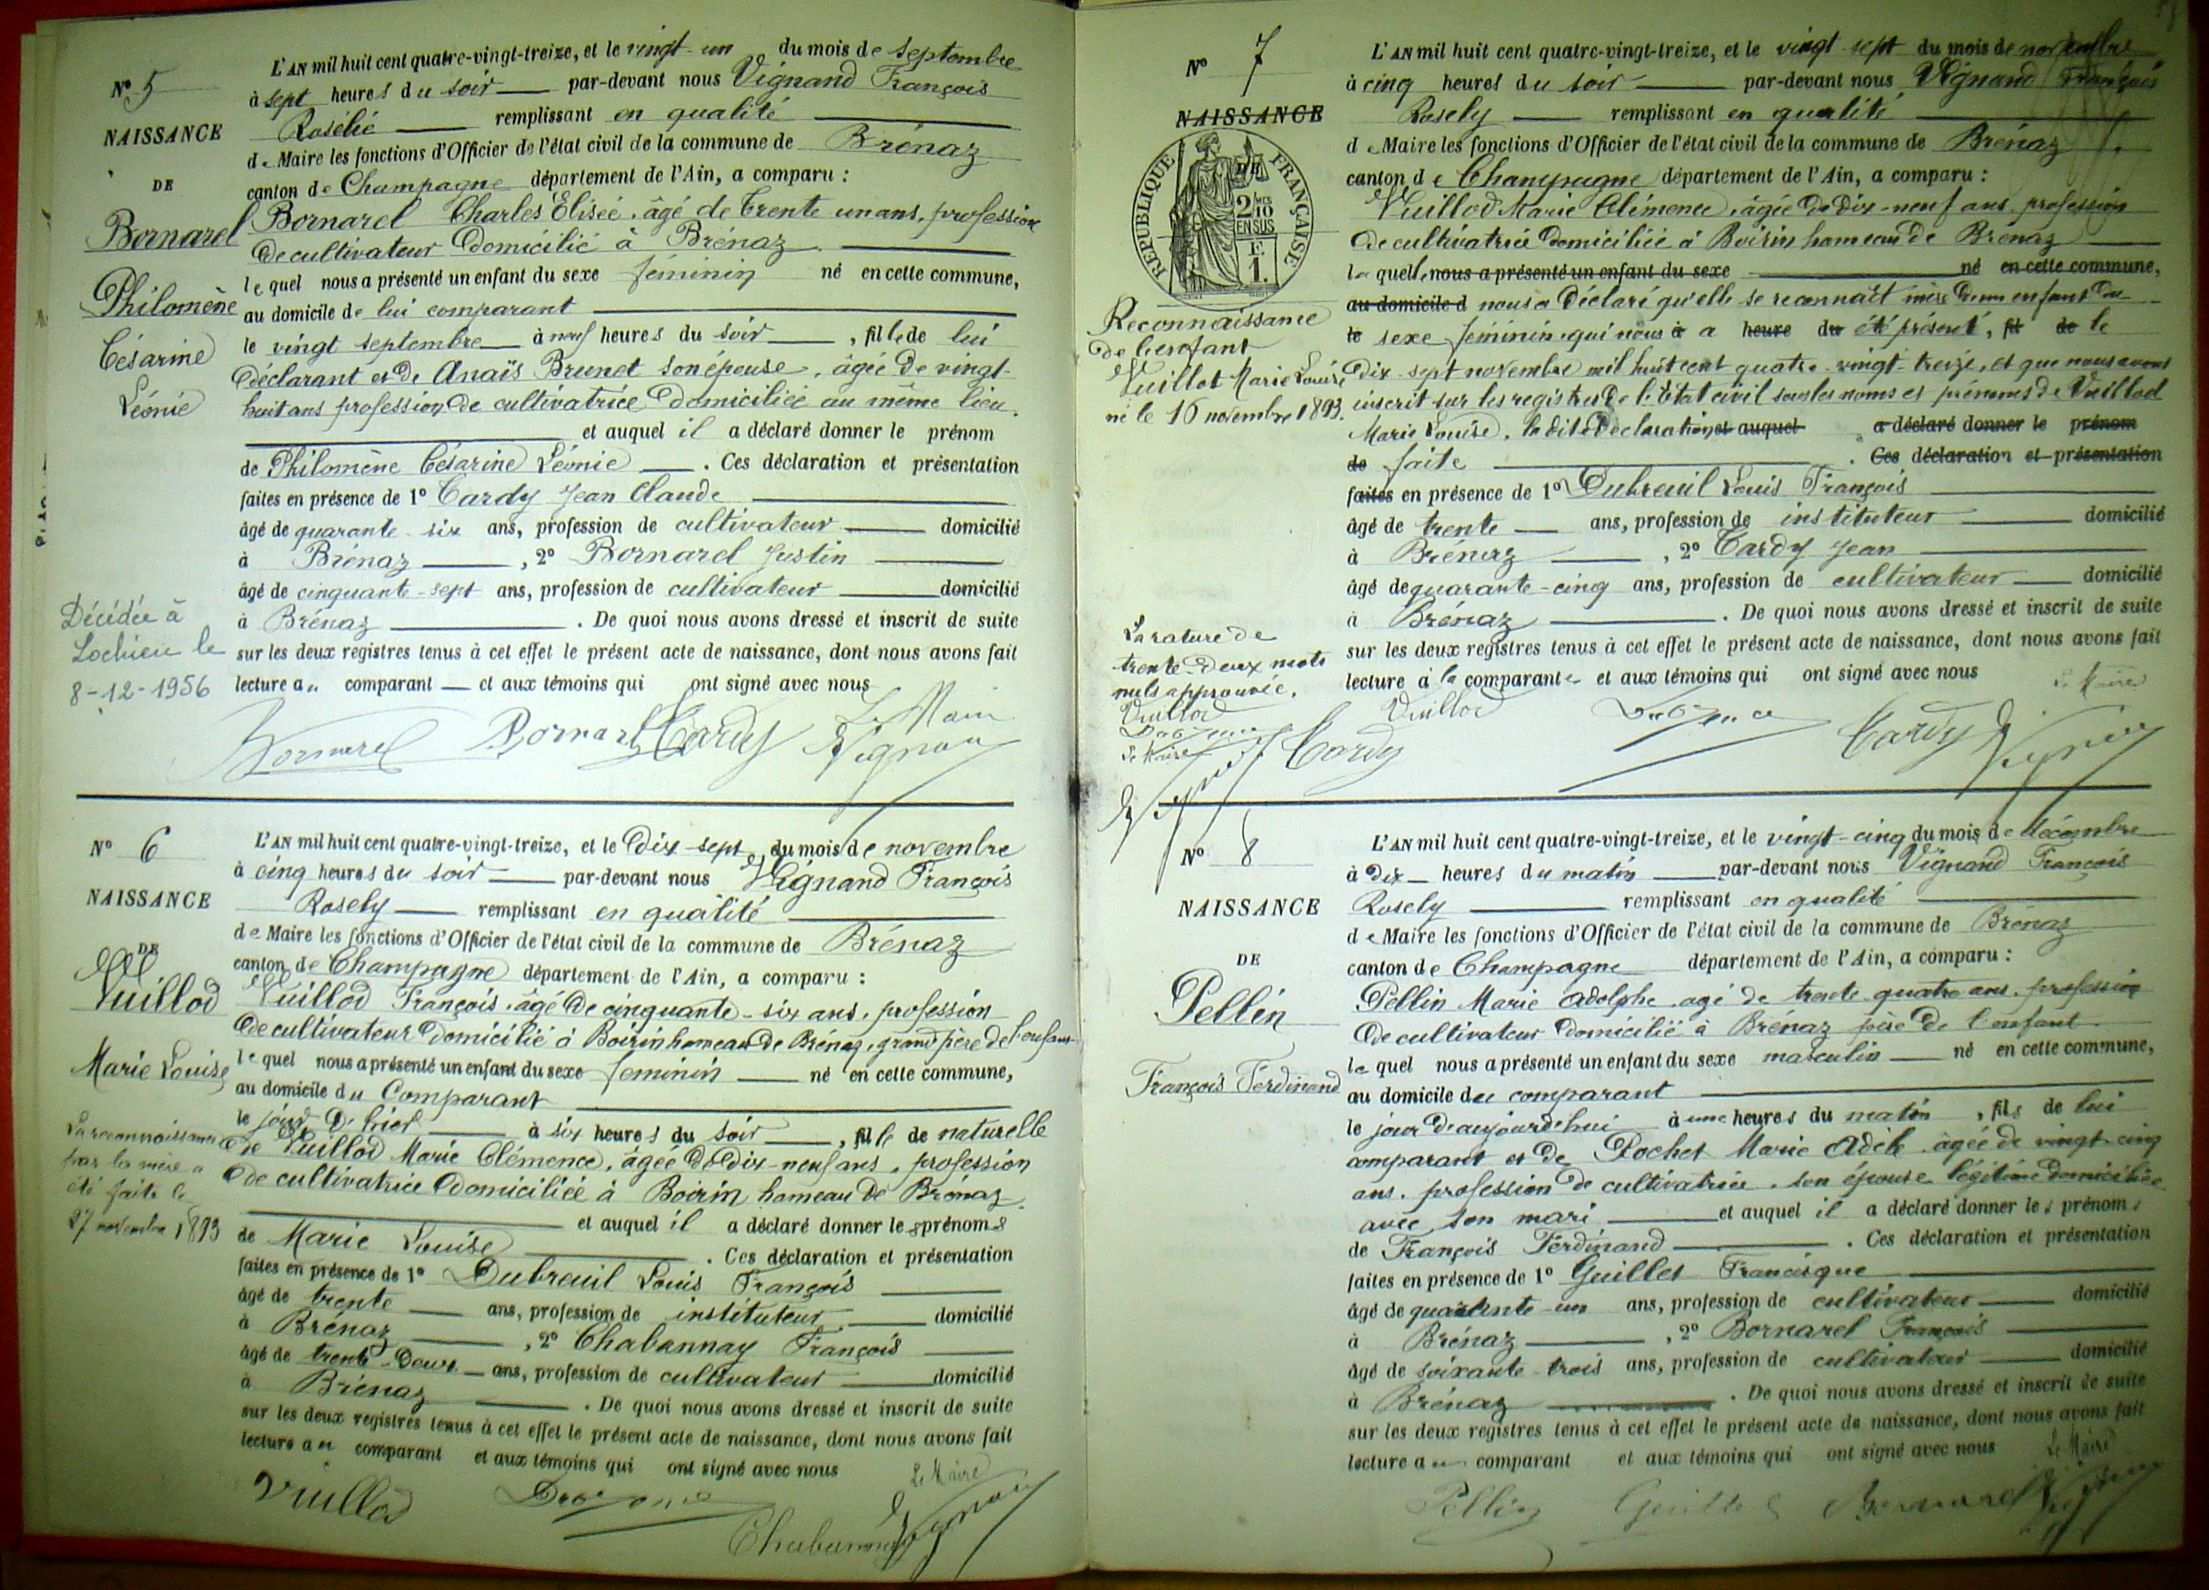 N° 5
NAISSANCE
DE
Bornarel
Philomène
Césarine
Léonie
Décédée à
Lochieu le
8-12-1956
L'AN mil huit cent quatre-vingt-treize, et le vingt-un du mois de septembre
à sept heures du soir par-devant nous Vignand François
Rosélié remplissant en qualité
de Maire les fonctions d'Officier de l'état civil de la commune de Brénaz
canton de Champagne département de l'Ain, a comparu :
Bornarel Charles Élisée, âgé de trente un ans, profession
de cultivateur domicilié à Brénaz
lequel nous a présenté un enfant du sexe féminin né en cette commune,
au domicile de lui comparant
le vingt septembre à neuf heures du soir, fille de lui
déclarant et de Anaïs Brunet son épouse, âgée de vingt-
huit ans profession de cultivatrice domiciliée au même lieu.
et auquel il a déclaré donner le prénom
de Philomène Césarine Léonie. Ces déclaration et présentation
faites en présence de 1° Tardy Jean Claude
âgé de quarante-six ans, profession de cultivateur domicilié
à Brénaz, 2° Bornarel Justin
âgé de cinquante-sept ans, profession de cultivateur domicilié
à Brénaz. De quoi nous avons dressé et inscrit de suite
sur les deux registres tenus à cet effet le présent acte de naissance, dont nous avons fait
lecture au comparant et aux témoins qui ont signé avec nous
Bornarel Bornarel Tardy Le Maire
Vignand
N° 6
NAISSANCE
DE
Vuillod
Marie Louise
La reconnaissance
par la mère a
été faite le
27 novembre 1893
L'AN mil huit cent quatre-vingt-treize, et le dix-sept du mois de novembre
à cinq heures du soir par-devant nous Vignand François
Rosely remplissant en qualité
de Maire les fonctions d'Officier de l'état civil de la commune de Brénaz
canton de Champagne département de l'Ain, a comparu :
Vuillod François, âgé de cinquante-six ans, profession
de cultivateur domicilié à Boirin hameau de Brénaz, grand père de l'enfant
lequel nous a présenté un enfant du sexe feminin né en cette commune,
au domicile du Comparant
le jour d'hier à six heures du soir, fille de naturelle
de Vuillod Marie Clémence, âgée de dix-neuf ans, profession
de cultivatrice domiciliée à Boirin hameau de Brénaz.
et auquel il a déclaré donner les prénoms
de Marie Louise. Ces déclaration et présentation
faites en présence de 1° Dubreuil Louis François
âgé de trente ans, profession de instituteur domicilié
à Brénaz, 2° Chabannay François
âgé de trente-deux ans, profession de cultivateur domicilié
à Brénaz. De quoi nous avons dressé et inscrit de suite
sur les deux registres tenus à cet effet le présent acte de naissance, dont nous avons fait
lecture au comparant et aux témoins qui ont signé avec nous
Le Maire
Vuillod
Chabannay Vignand
N° 7
NAISSANCE
RÉPUBLIQUE FRANÇAISE
2/10
EN SUS
F.
1.
Reconnaissance
de l'enfant
Vuillot Marie Louise
né le 16 novembre 1893.
La rature de
trente-deux mots
nuls approuvée.
Vuillod
Le Maire
L'AN mil huit cent quatre-vingt-treize, et le vingt-sept du mois de novembre
à cinq heures du soir par-devant nous Vignand François
Rosely remplissant en qualité
de Maire les fonctions d'Officier de l'état civil de la commune de Brénaz
canton de Champagne département de l'Ain, a comparu :
Vuillod Marie Clémence, âgée de dix-neuf ans, profession
de cultivatrice domiciliée à Boirin hameau de Brénaz
laquelle nous a présenté un enfant du sexe né en cette commune,
au domicile d nous a déclaré qu'elle se reconnaît mère d'un enfant du
le sexe féminin qui nous à a heure du été présenté, fil de le
dix-sept novembre mil huit cent quatre-vingt-treize, et que nous avons
inscrit sur les registres de l'État civil sous les noms et prénoms de Vuillod
Marie Louise, la dite déclaration et auquel a déclaré donner le prénom
de faite. Ces déclaration et présentation
faites en présence de 1° Dubreuil Louis François
âgé de trente ans, profession de instituteur domicilié
à Brénaz, 2° Tardy Jean
âgé de quarante-cinq ans, profession de cultivateur domicilié
à Brénaz. De quoi nous avons dressé et inscrit de suite
sur les deux registres tenus à cet effet le présent acte de naissance, dont nous avons fait
lecture à la comparante et aux témoins qui ont signé avec nous
Le Maire
Tardy Vuillod Tardy Vignand
N° 8
NAISSANCE
DE
Pellin
François Ferdinand
L'AN mil huit cent quatre-vingt-treize, et le vingt-cinq du mois de décembre
à dix heures du matin par-devant nous Vignand François
Rosely remplissant en qualité
de Maire les fonctions d'Officier de l'état civil de la commune de Brénaz
canton de Champagne département de l'Ain, a comparu :
Pellin Marie Adolphe âgé de trente quatre ans, profession
de cultivateur domicilié à Brénaz père de l'enfant
lequel nous a présenté un enfant du sexe masculin né en cette commune,
au domicile du comparant
le jour d'aujourd'hui à une heures du matin, fils de lui
comparant et de Pochet Marie Adèle âgée de vingt-cinq
ans, profession de cultivatrice, son épouse légitime domiciliée
avec son mari et auquel il a déclaré donner les prénoms
de François Ferdinand. Ces déclaration et présentation
faites en présence de 1° Guillet Francisque
âgé de quarante-un ans, profession de cultivateur domicilié
à Brénaz, 2° Bornarel François
âgé de soixante-trois ans, profession de cultivateur domicilié
à Brénaz. De quoi nous avons dressé et inscrit de suite
sur les deux registres tenus à cet effet le présent acte de naissance, dont nous avons fait
lecture au comparant et aux témoins qui ont signé avec nous
Le Maire
Pellin Guillet Bornarel Vignand